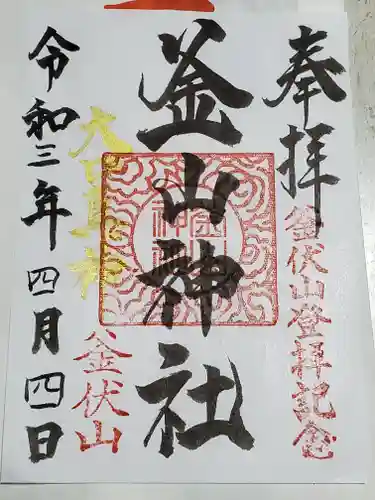 奉拝
釜伏山登拝記念
釜山神社
釜伏山
令和三年四月四日